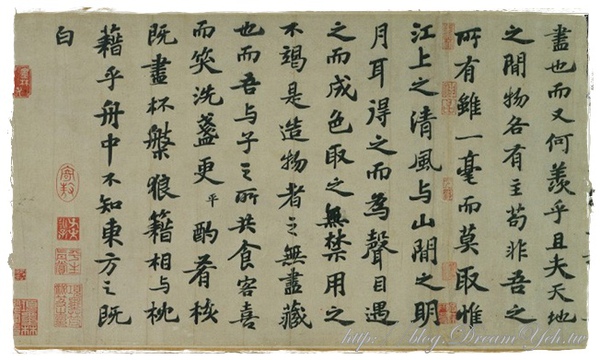 盡也而又何羨乎且夫天地
之間物各有主苟非吾之
所有雖一毫而莫取惟
江上之清風与山間之明
月耳得之而為聲目遇
之而成色取之無禁用之
不竭是造物者之無盡藏
也而吾与子之所共食客喜
而笑洗盞更平酌肴核
既盡杯槃狼籍相与枕
籍乎舟中不知東方之既
白